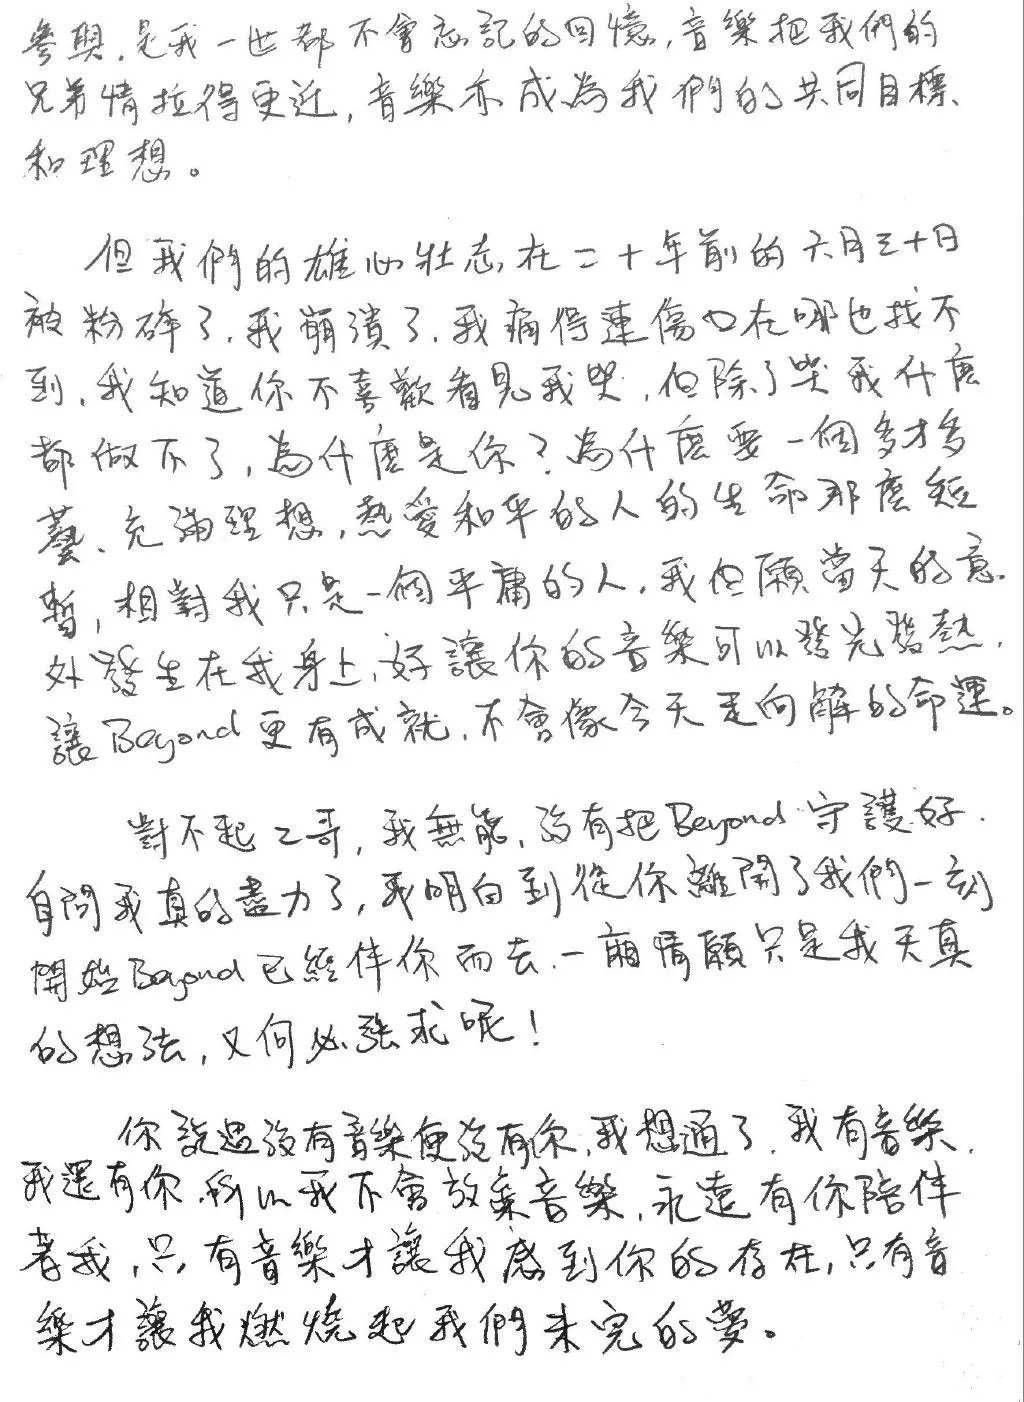 參與，是我一世都不會忘記的回憶，音樂把我們的
兄弟情拉得更近，音樂亦成為我們的共同目標、
和理想。
但我們的雄心壯志在二十年前的六月三十日
被粉碎了，我崩潰了，我痛得連傷口在哪也找不
到，我知道你不喜歡看見我哭，但除了哭我什麼
都做不了，為什麼是你？為什麼要一個多才多
藝、充滿理想，熱愛和平的人的生命那麼短
暫，相對我只是一個平庸的人，我但願當天的意
外發生在我身上，好讓你的音樂可以發光發熱，
讓Beyond更有成就，不會像今天走向解的命運。
對不起二哥，我無能，沒有把Beyond守護好，
自問我真的盡力了，我明白到從你離開了我們一刻
開始Beyond已經伴你而去，一廂情願只是我天真
的想法，又何必強求呢！
你說過沒有音樂便沒有你，我想通了，我有音樂，
我還有你，所以我不會放棄音樂，永遠有你陪伴
著我，只有音樂才讓我感到你的存在，只有音
樂才讓我燃燒起我們未完的夢。